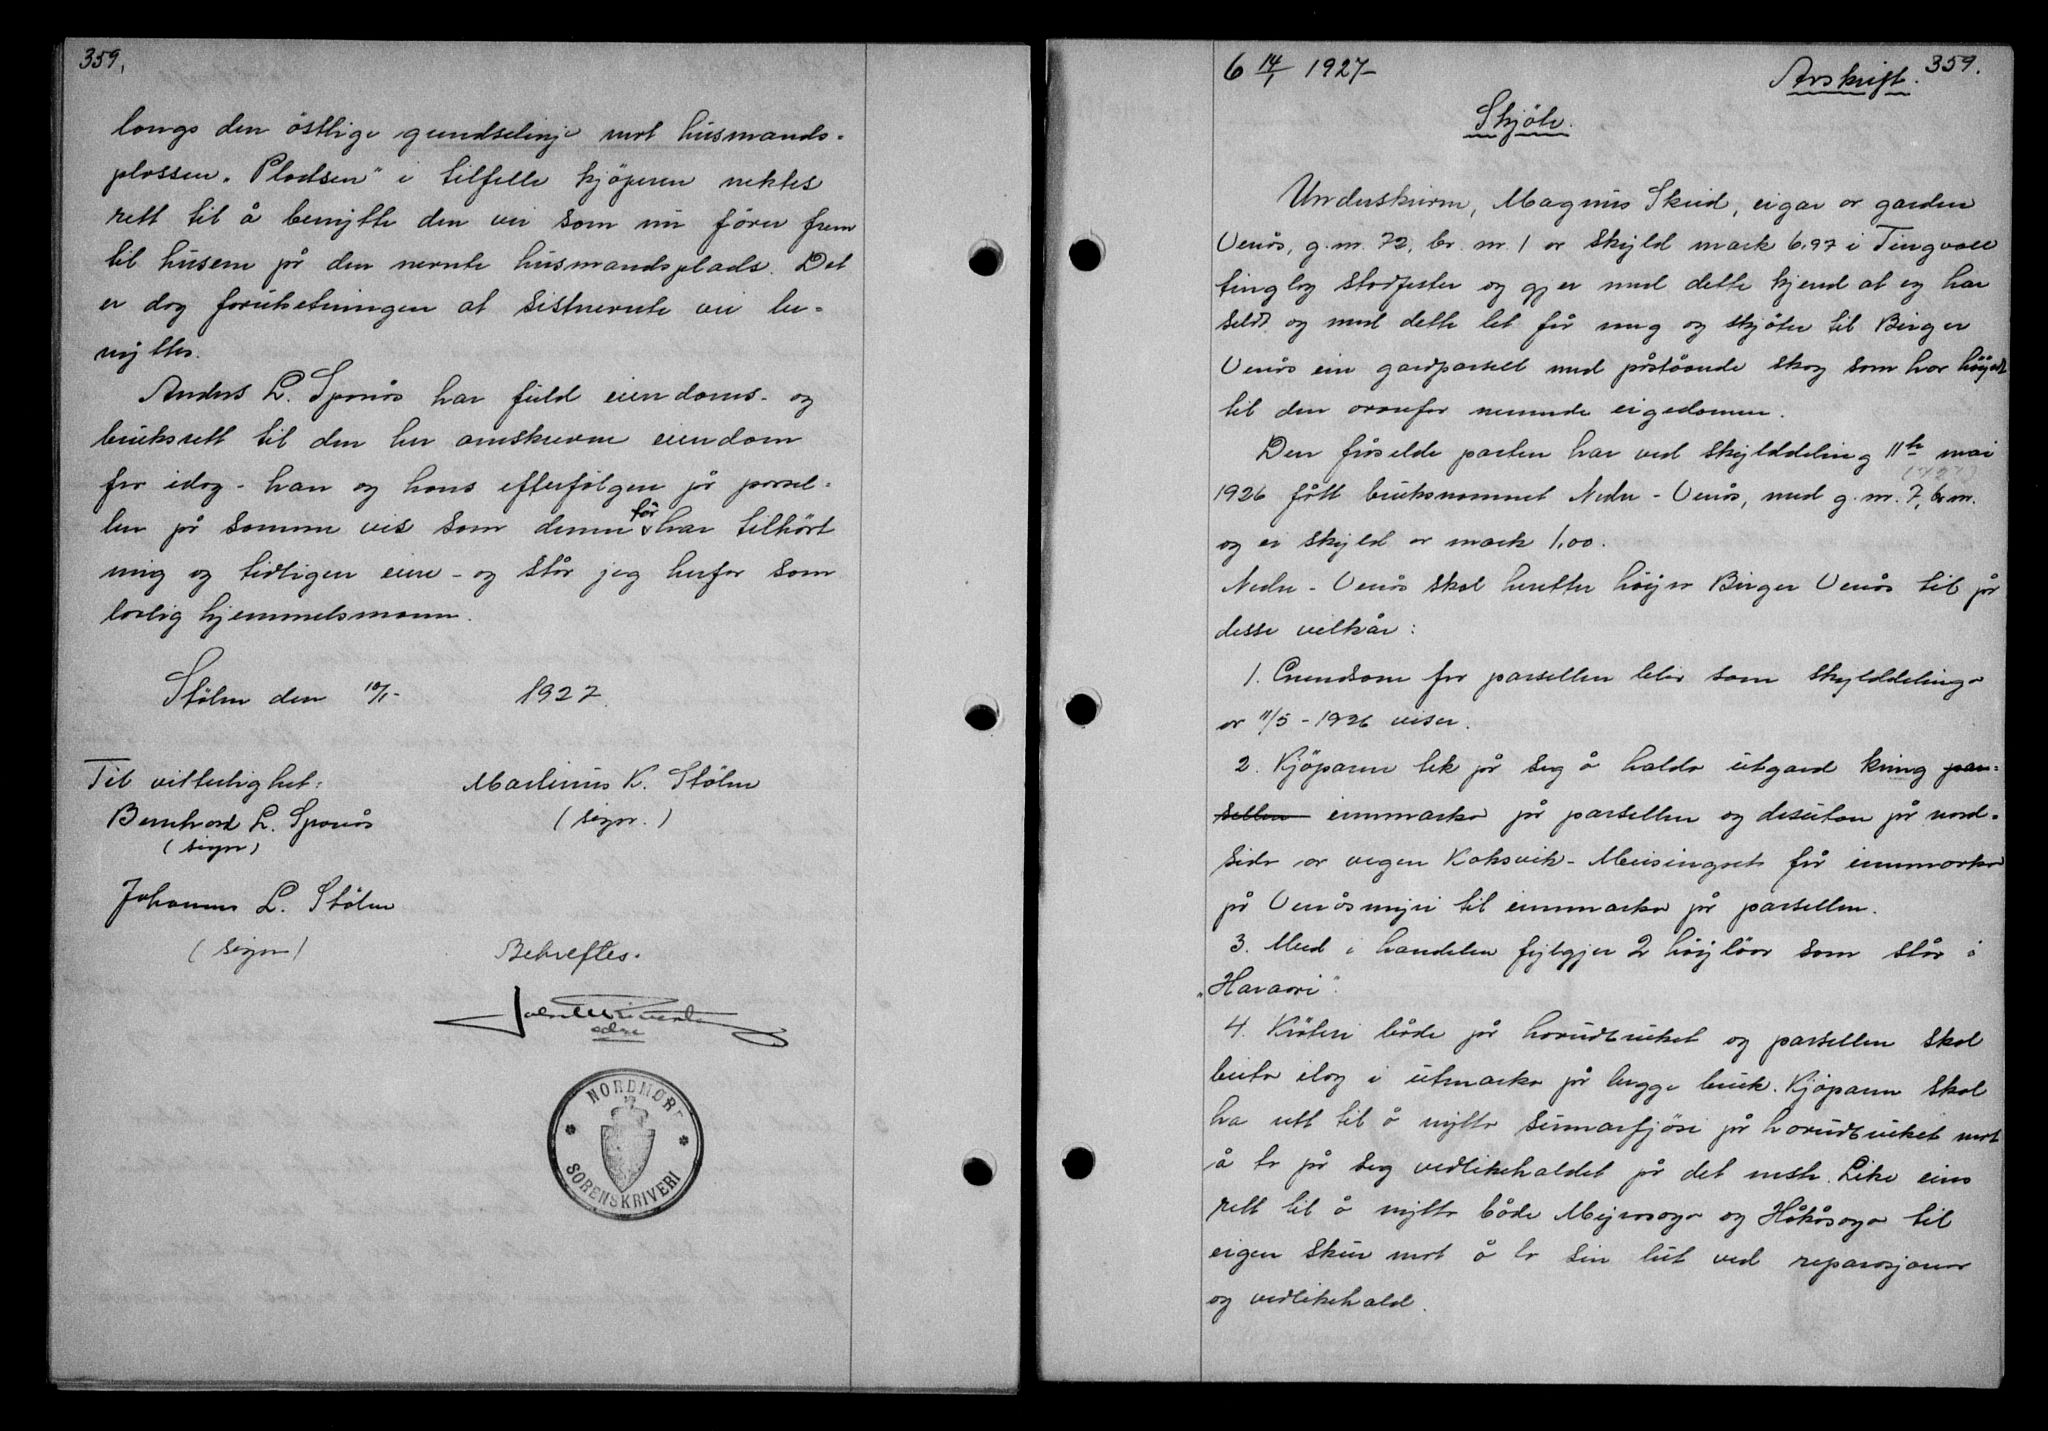 359.
langs den östlige grendselinje mot husmands-
plassen „Pladsen" i tilfelle kjöperen nektes
rett til å benytte den vei som nu förer frem
til husene på den nevnte husmandsplads. Det
er dog forutsetningen at sistnevnte vei be-
nyttes.
Anders L. Sponås har fuld eiendoms- og
bruksrett til den her omskrevne eiendom
fra idag - han og hans efterfölgere på parsel-
len på samme vis som denne för har tilhört
mig og tidligere eiere - og står jeg herfor som
lovlig hjemmelsmann.
Stölen den 10/1- 1927.
Til vitterlighet:
Martinus K. Stölen
Bernhard L. Sponås
(sign.)
(sign)
Johannes L. Stölen
(sign)
Bekreftes.
NORDMØRE
SORENSKRIVERI
6 14/1 1927-
Avskrift.
359.
Skjöte.
Underskreven, Magnus Skrid, eigar av garden
Venås, g.nr. 72, br. nr. 1 av skyld mark 6,97 i Tingvoll
tinglag stadfester og gjer med dette kjend at eg har
seldt og med dette let frå meg og skjöter til Birger
Venås ein gardparsell med påståande skog som har höyrt
til den ovanfor nemnde eigedomen.
Den fråselde parten har ved skylddeling 11te mai
1926 fått bruksnamnet Nedre - Venås, med g.nr. 7, br.nr.
og ei skyld av mark 1,00.
Nedre - Venås skal heretter höyra Birger Venås til på
desse vilkår:
1. Grendsone for parsellen blir som skylddelinga
av 11/5 - 1926 viser.
2. Kjöparen tek på seg å halda utgard kring par-
sellen innmarka på parsellen og desutan på nord-
sida av vegen Koksvik - Meisingset frå innmarka
på Venåsmyri til innmarka på parsellen.
3. Med i handelen fylgjer 2 höylöor som står i
„Haraori".
4. Kröteri både på hovudbruket og parsellen skal
beita ilag i utmarka på begge bruk. Kjöparen skal
ha rett til å nytta sumarfjösi på hovudbruket mot
å ta på seg vedlikehaldet på det meste. Like eins
rett til å nytta både Myrasaga og Håkåsaga til
eigen skur mot å ta sin lut ved reparasjonar
og vedlikehald.